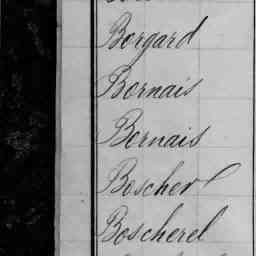 Borgard
Bornais
Bernais
Boscher
Boscherel